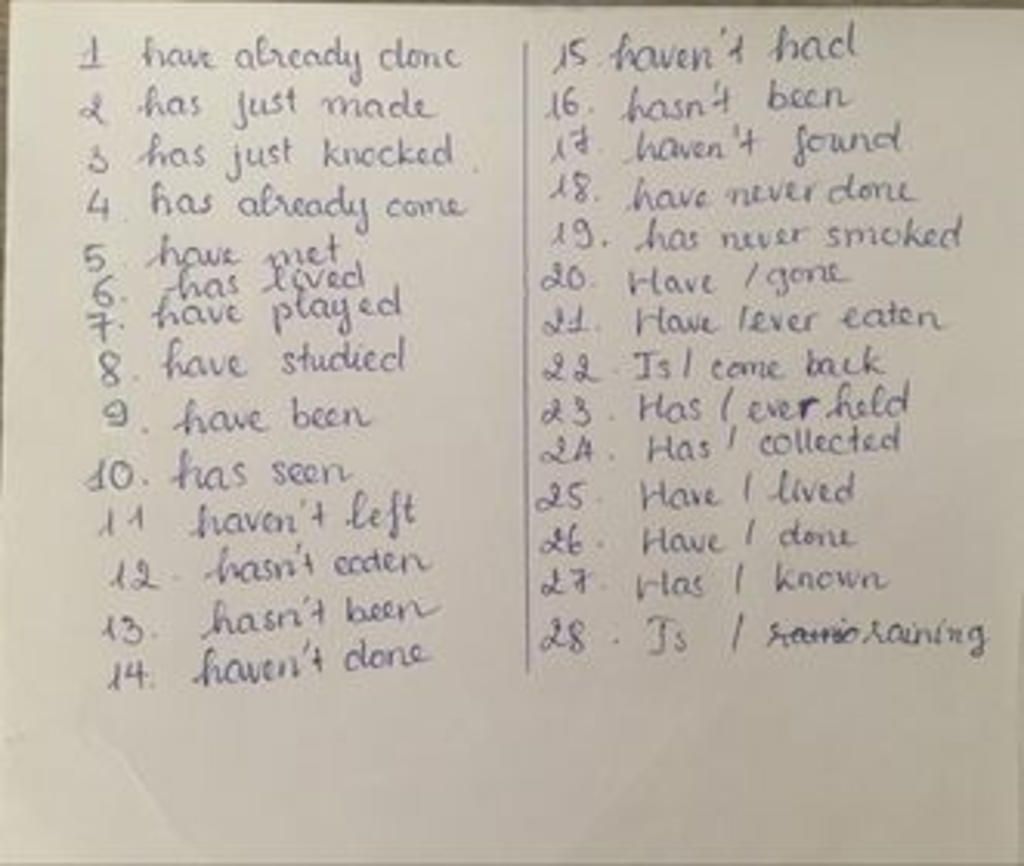 1 have already done
2 has just made
3 has just knocked.
4 has already come
5. have met
6. has lived
7. have played
8. have studied
9. have been
10. has seen
11 haven't left
12. hasn't eaten
13. hasn't been
14. haven't done
15 haven't had
16. hasn't been
17 haven't found
18. have never done
19. has never smoked
20. Have / gone
21. Have / ever eaten
22 Is / come back
23. Has / ever held
24. Has / collected
25. Have / lived
26. Have / done
27. Has / known
28. Is / raining